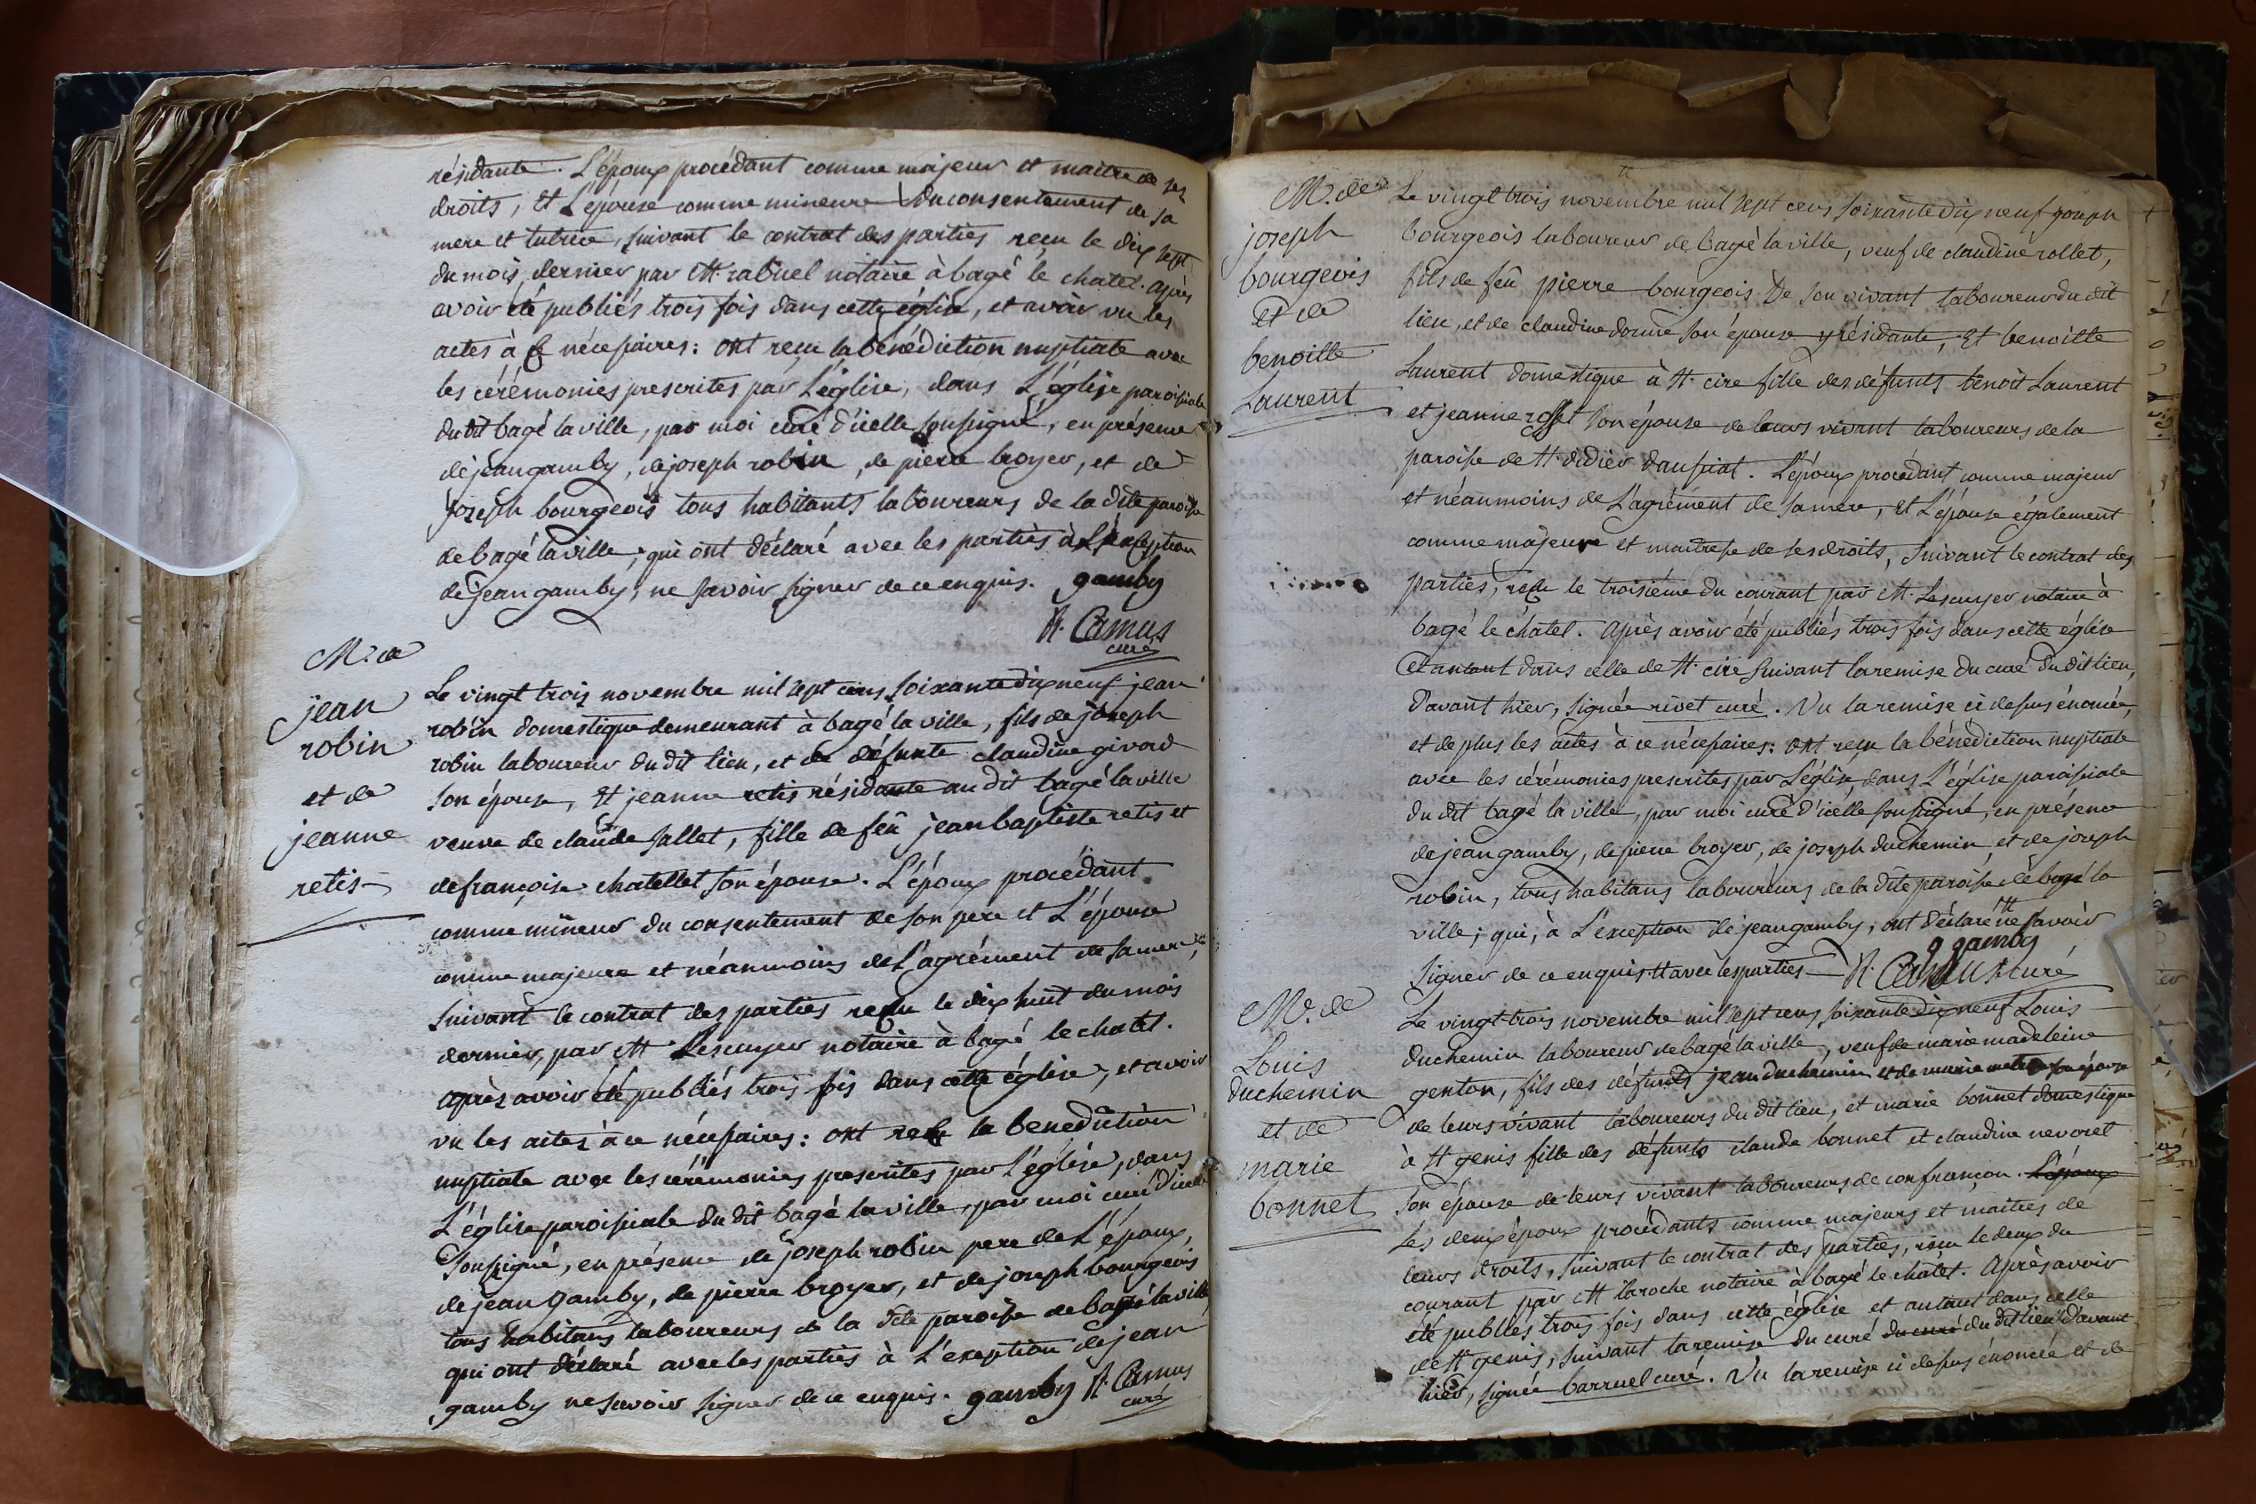 résidante. L'époux procédant comme majeur et maitre de ses
droits, et L'épouse comme mineure du consentement de sa
mere et tutrice, suivant le contrat des parties reçu le dix sept
du mois dernier par Mr. rabuel notaire à bagé le chatel. après
avoir été publiés trois fois dans cette église, et avoir vu les
actes à ce nécessaires: ont reçu la bénédiction nuptiale avec
les cérémonies prescrites par L'église, dans L'église paroissiale
du dit bagé la ville, par moi curé d'icelle soussigné, en présence
de jean gamby, de joseph robin, de pierre broyer, et de
joseph bourgeois tous habitants laboureurs de la dite paroisse
de bagé la ville, qui ont déclaré avec les parties à L'exception
de jean gamby, ne savoir signer de ce enquis. gamby
St. Camus
curé
M. de
jean
robin
et de
jeanne
retis
Le vingt trois novembre mil sept cens soixante dix neuf jean
robin domestique demeurant à bagé la ville, fils de joseph
robin laboureur du dit lieu, et de défunte claudine givord
son épouse, et jeanne retis résidante au dit bagé la ville
veuve de claude sallet, fille de feû jean baptiste retis et
de françoise chatellet son épouse. L'époux procédant
comme mineur du consentement de son pere et L'épouse
comme majeure et néanmoins de L'agrément de sa mere,
suivant le contrat des parties reçu le dix huit du mois
dernier, par Mr Lescuyer notaire à bagé le chatel.
après avoir été publiés trois fois dans cette église, et avoir
vu les actes à ce nécessaires: ont reçu la benediction
nuptiale avec les cérémonies prescrites par l'église, dans
L'église paroissiale du dit bagé la ville, par moi curé d'icelle
soussigné, en présence de joseph robin pere de L'époux,
de jean gamby, de pierre broyer, et de joseph bourgeois
tous habitans laboureurs de la dite paroisse de bagé la ville,
qui ont déclaré avec les parties à L'exception de jean
gamby ne savoir signer de ce enquis. gamby St. Camus
curé
M. de
joseph
bourgeois
et de
benoitte
Laurent
Le vingt trois novembre mil sept cens soixante dix neuf joseph
bourgeois laboureur de bagé la ville, veuf de claudine rollet,
fils de feû pierre bourgeois de son vivant laboureur du dit
lieu, et de claudine donne son épouse y résidante, et benoitte
Laurent domestique à St. cire fille des défunts benoit Laurent
et jeanne son épouse de leurs vivant laboureurs de la
paroisse de St. didier daussiat. L'époux procédant comme majeur
et néanmoins de L'agrément de sa mere, et L'épouse également
comme majeure et maitresse de ses droits, suivant le contrat des
parties, reçu le troisième du courant par Mr. Lescuyer notaire à
bagé le châtel. après avoir été publiés trois fois dans cette église
et autant dans celle de St. cire suivant la remise du curé du dit lieu,
d'avant hier, signée rivet curé. Vu la remise ci dessus énoncée,
et de plus les actes à ce nécessaires: ont reçu la bénédiction nuptiale
avec les cérémonies prescrites par L'église, dans L'église paroissiale
du dit bagé la ville, par moi curé d'icelle soussigné, en présence
de jean gamby, de pierre broyer, de joseph duchemin, et de joseph
robin, tous habitans laboureurs de la dite paroisse de bagé la
ville; qui, à L'exception de jean gamby, ont déclaré ne savoir
signer de ce enquis et avec les parties gamby St. Camus curé
M. de
Louis
duchemin
et de
marie
bonnet
Le vingt trois novembre mil sept cens soixante dix neuf Louis
duchemin laboureur de bagé la ville, veuf de marie madeleine
genton, fils des défunts jean duchemin et de marie son épouse
de leurs vivant laboureurs du dit lieu, et marie bonnet domestique
à St genis fille des défunts claude bonnet et claudine nevoret
son épouse de leurs vivant laboureurs de confrançon. L'époux
Les deux époux procédants comme majeurs et maitres de
leurs droits, suivant le contrat des parties, reçu le deux du
courant par Mr laroche notaire à bagé le châtel. Après avoir
été publiés trois fois dans cette église et autant dans celle
de St genis, suivant la remise du curé du curé du dit lieu d'avant
hier, signée barruel curé. Vu la remise ci dessus énoncée et de